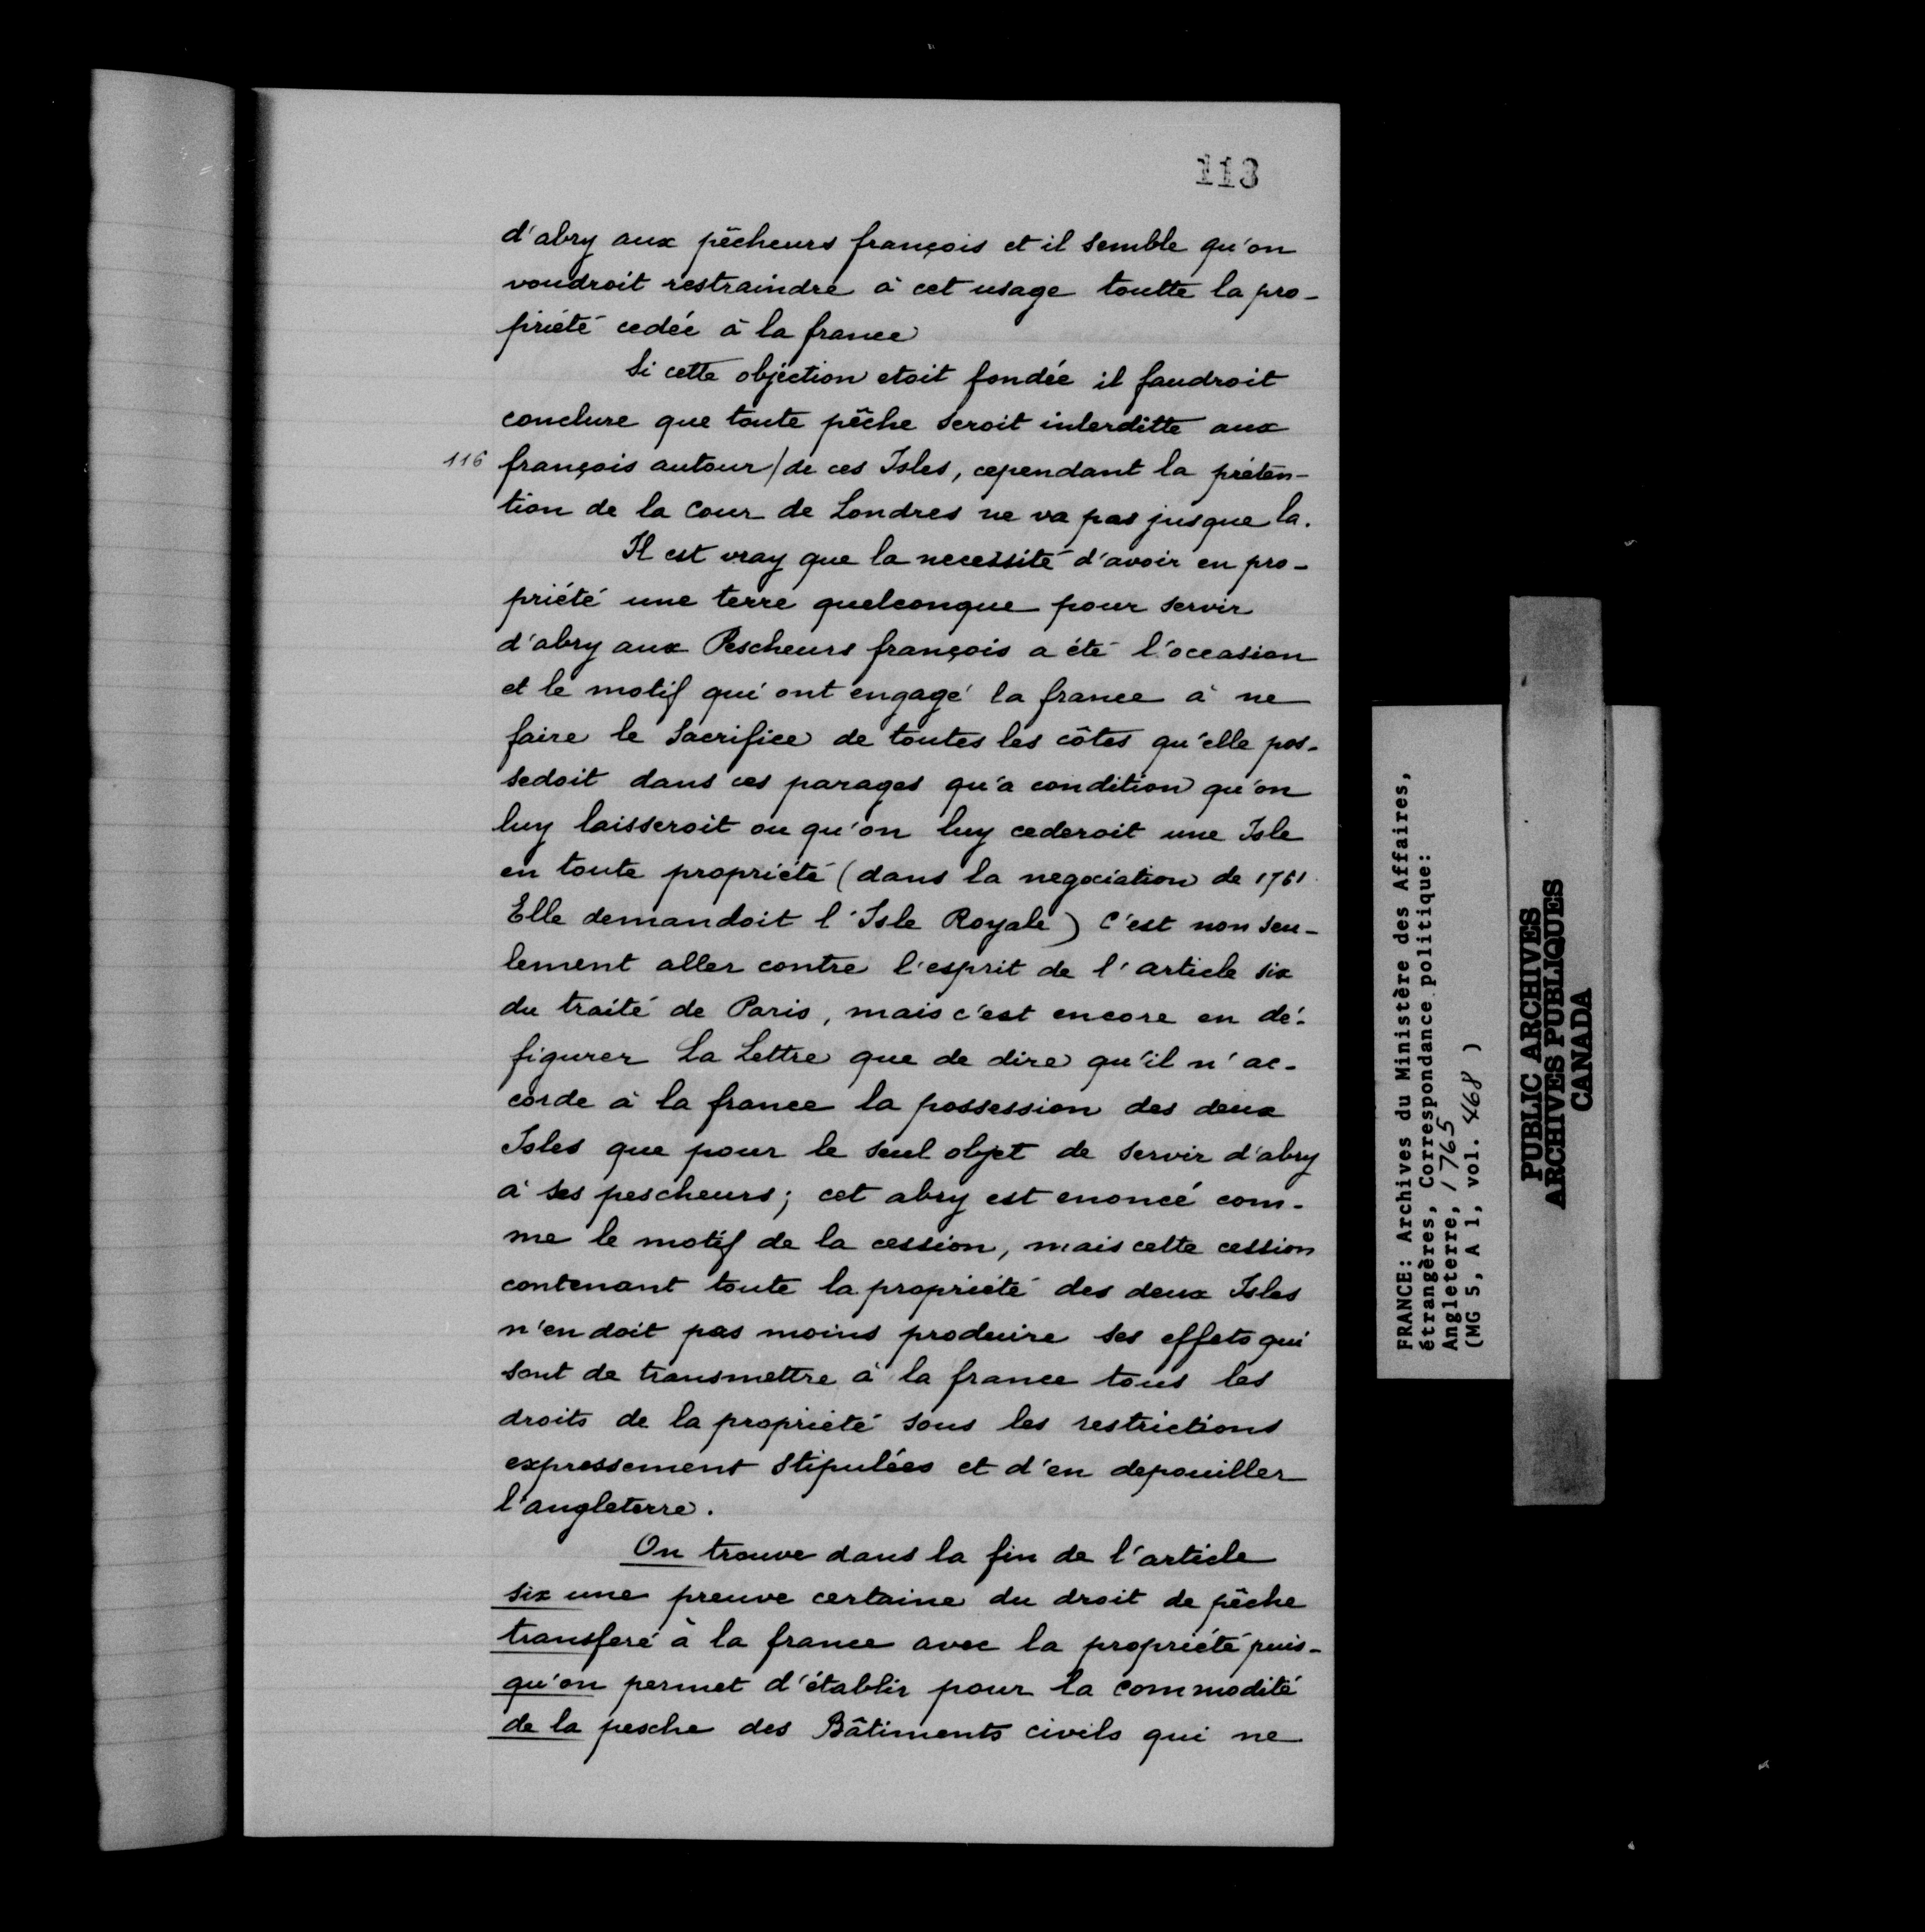 113
d'abry aux pêcheurs françois et il semble qu'on
voudroit restraindre à cet usage toutte la pro-
priété cedée à la france
Si cette objection etoit fondée il faudroit
conclure que toute pêche seroit interditte aux
116 françois autour/de ces Isles, cependant la préten-
tion de la Cour de Londres ne va pas jusque la.
Il est vray que la necessité d'avoir en pro-
priété une terre quelconque pour servir
d'abry aux Pescheurs françois a été l'occasion
et le motif qui ont engagé la france à ne
faire le Sacrifice de toutes les côtes qu'elle pos-
sedoit dans ces parages qu'a condition qu'on
luy laisseroit ou qu'on luy cederoit une Isle
en toute propriété (dans la negociation de 1761
Elle demandoit l'Isle Royale) C'est non seu-
lement aller contre l'esprit de l'article six
du traité de Paris, mais c'est encore en dé-
figurer la Lettre que de dire qu'il n'ac-
corde à la france la possession des deux
Isles que pour le seul objet de servir d'abry
à ses pescheurs; cet abry est enoncé com-
me le motif de la cession, mais cette cession
contenant toute la propriété des deux Isles
n'en doit pas moins produire ses effets qui
sont de transmettre à la france tous les
droits de la propriété sous les restrictions
expressement stipulées et d'en depouiller
l'angleterre.
On trouve dans la fin de l'article
six une preuve certaine du droit de pêche
transferé à la france avec la propriété puis-
qu'on permet d'établir pour la commodité
de la pesche des Bâtiments civils qui ne
FRANCE: Archives du Ministère des Affaires,
étrangères, Correspondance politique:
Angleterre, 1765
(MG 5, A 1, vol. 468 )
PUBLIC ARCHIVES
ARCHIVES PUBLIQUES
CANADA